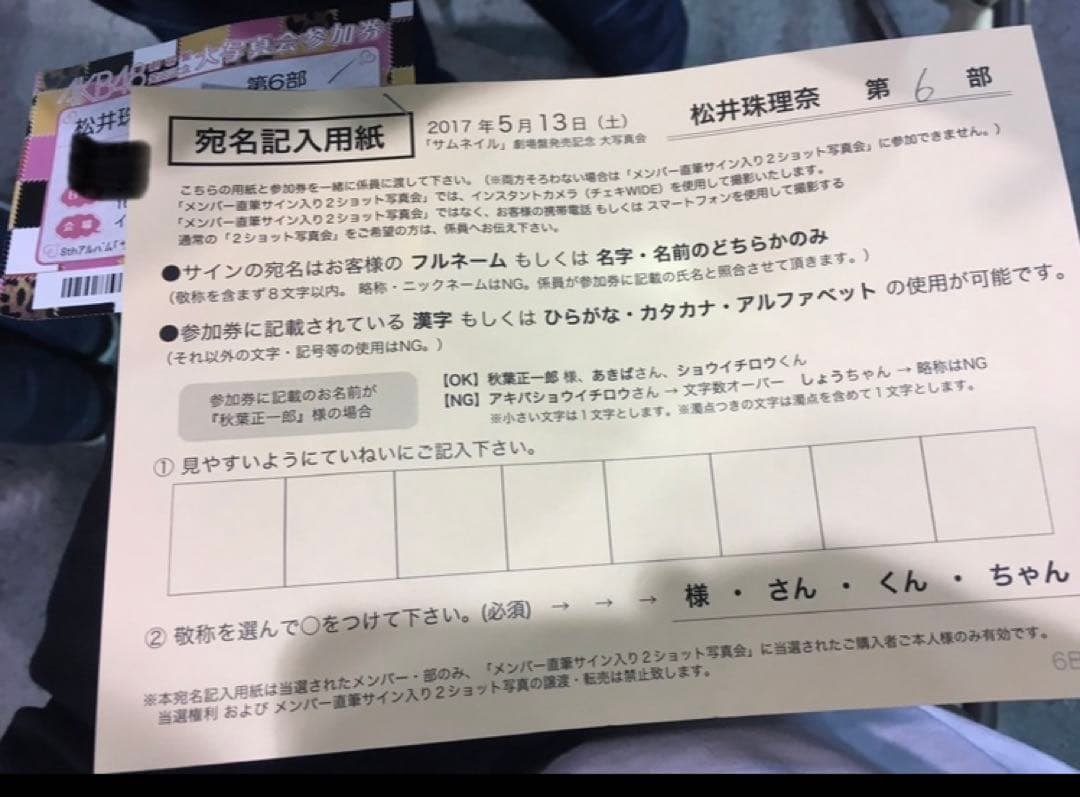 AKB48 大写真会参加券
第6部
松井珠
8thアルバム「サ
宛名記入用紙
2017年5月13日（土）
「サムネイル」劇場盤発売記念 大写真会
松井珠理奈 第 6 部
こちらの用紙と参加券を一緒に係員に渡して下さい。（※両方そろわない場合は「メンバー直筆サイン入り２ショット写真会」に参加できません。）
「メンバー直筆サイン入り２ショット写真会」では、インスタントカメラ（チェキWIDE）を使用して撮影いたします。
「メンバー直筆サイン入り２ショット写真会」ではなく、お客様の携帯電話 もしくは スマートフォンを使用して撮影する
通常の「２ショット写真会」をご希望の方は、係員へお伝え下さい。
●サインの宛名はお客様の フルネーム もしくは 名字・名前のどちらかのみ
（敬称を含まず８文字以内。 略称・ニックネームはNG。係員が参加券に記載の氏名と照合させて頂きます。）
●参加券に記載されている 漢字 もしくは ひらがな・カタカナ・アルファベット の使用が可能です。
（それ以外の文字・記号等の使用はNG。）
参加券に記載のお名前が
『秋葉正一郎』様の場合
【OK】秋葉正一郎 様、あきばさん、ショウイチロウくん
【NG】アキバショウイチロウさん → 文字数オーバー しょうちゃん → 略称はNG
※小さい文字は１文字とします。※濁点つきの文字は濁点を含めて１文字とします。
① 見やすいようにていねいにご記入下さい。
② 敬称を選んで○をつけて下さい。(必須) → → → 様 ・ さん ・ くん ・ ちゃん
※本宛名記入用紙は当選されたメンバー・部のみ、「メンバー直筆サイン入り２ショット写真会」に当選されたご購入者ご本人様のみ有効です。
当選権利 および メンバー直筆サイン入り２ショット写真の譲渡・転売は禁止致します。